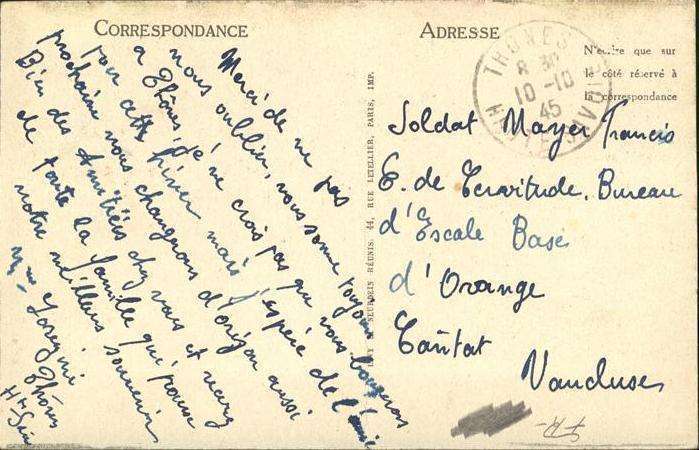 CORRESPONDANCE
Merci de ne pas
nous oublier, nous somme toujours
a Thônes, je ne crois pas que nous bougerons
pour cette hiver mais j'espère de l'année
prochaine nous changerons d'orizon aussi
Bien des Amitiées chez vous et
de toute la famille qui pense
notre meilleur souvenir
Mme
Thônes
Hte-Savoie
LEVY & NEURDEIN RÉUNIS, 44, RUE LETELLIER, PARIS, IMP.
ADRESSE
N'écrire que sur
le côté réservé à
la correspondance
THONES
8 30
10-10
45
HAUTE SAVOIE
Soldat Mayer Francis
Bureau
d'Escale Base
d'Orange
Caritat
Vaucluse